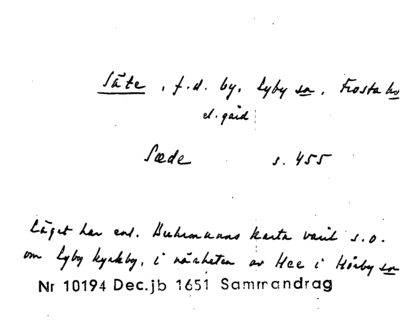 Säte, f.d. by, Lyby sn, Frosta hd
el. gård
Sæde s. 455
Läget har enl. Buhrmanns karta varit s.o.
om Lyby kyrkby, i närheten av Hee i Hörby sn
Nr 10194 Dec.jb 1651 Sammandrag